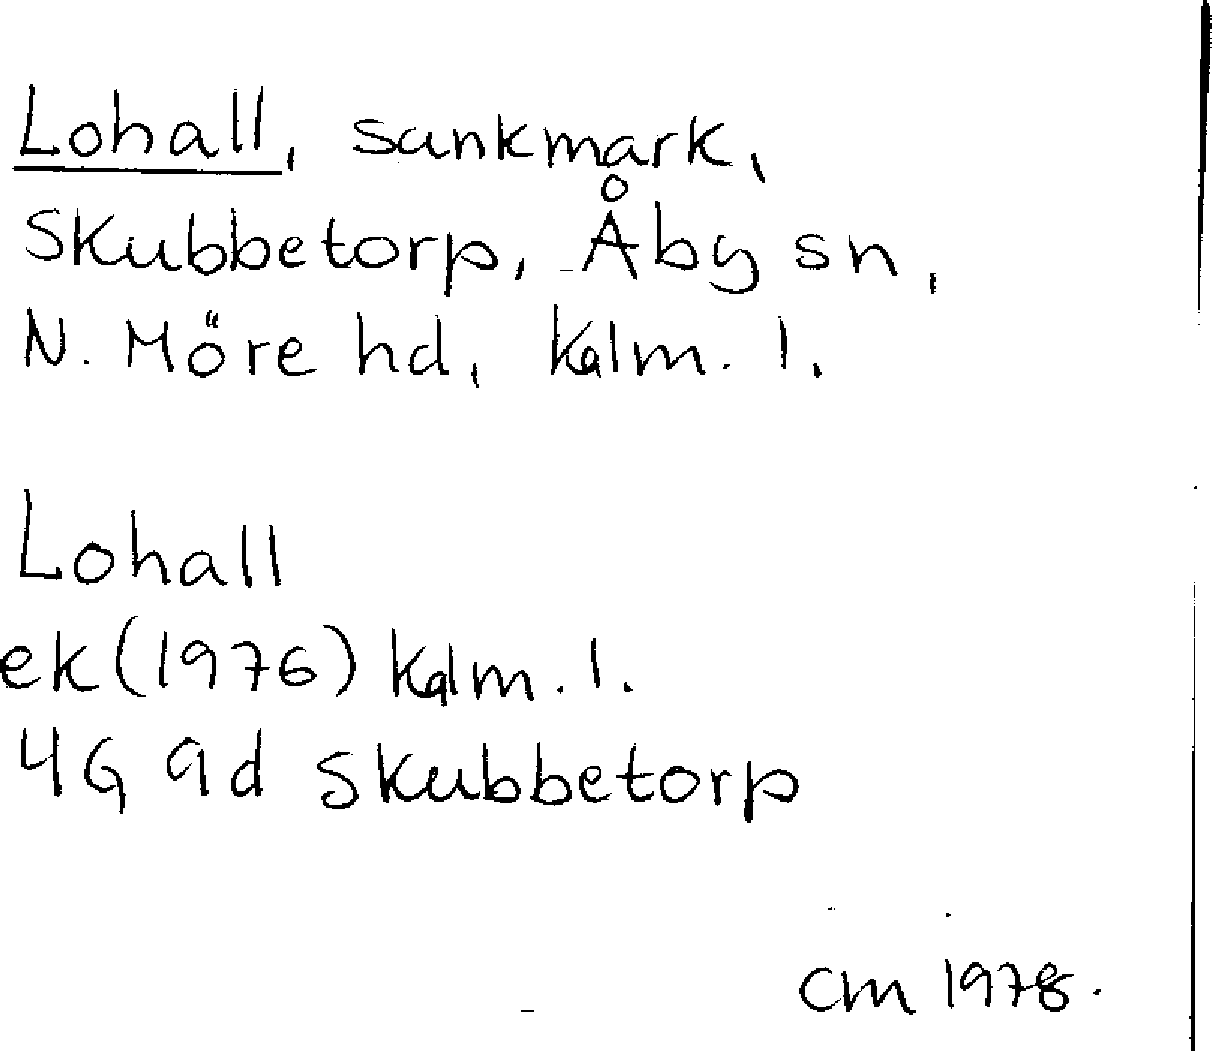 Lohall, sankmark,
Skubbetorp, Åby sn,
N. Möre hd, Kalm. l.
Lohall
ek (1976) Kalm. l.
4G 9d Skubbetorp
CM 1978.